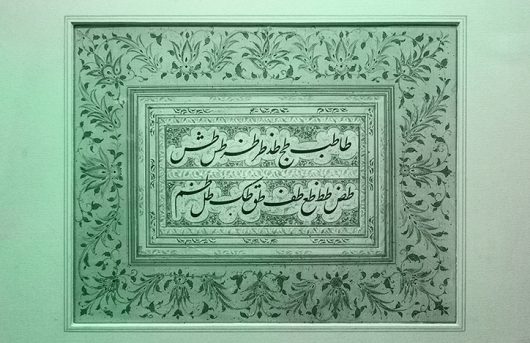 طا طب طج طد طر طس طش
طص طط طع طف طق طک طل طم